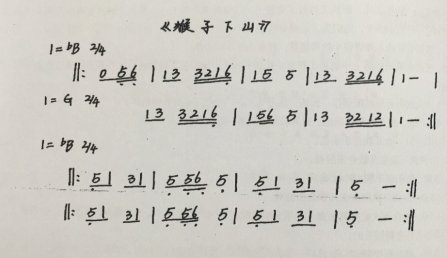 《猴子下山》
1=♭B 2/4
‖: 0 56 | 13 3216 | 15 5 | 13 3216 | 1 - |
1=G 2/4
13 3216 | 156 5 | 13 3212 | 1 - :‖
1=♭B 2/4
‖: 51 31 | 556 5 | 51 31 | 5 - :‖
‖: 51 31 | 556 5 | 51 31 | 5 - :‖